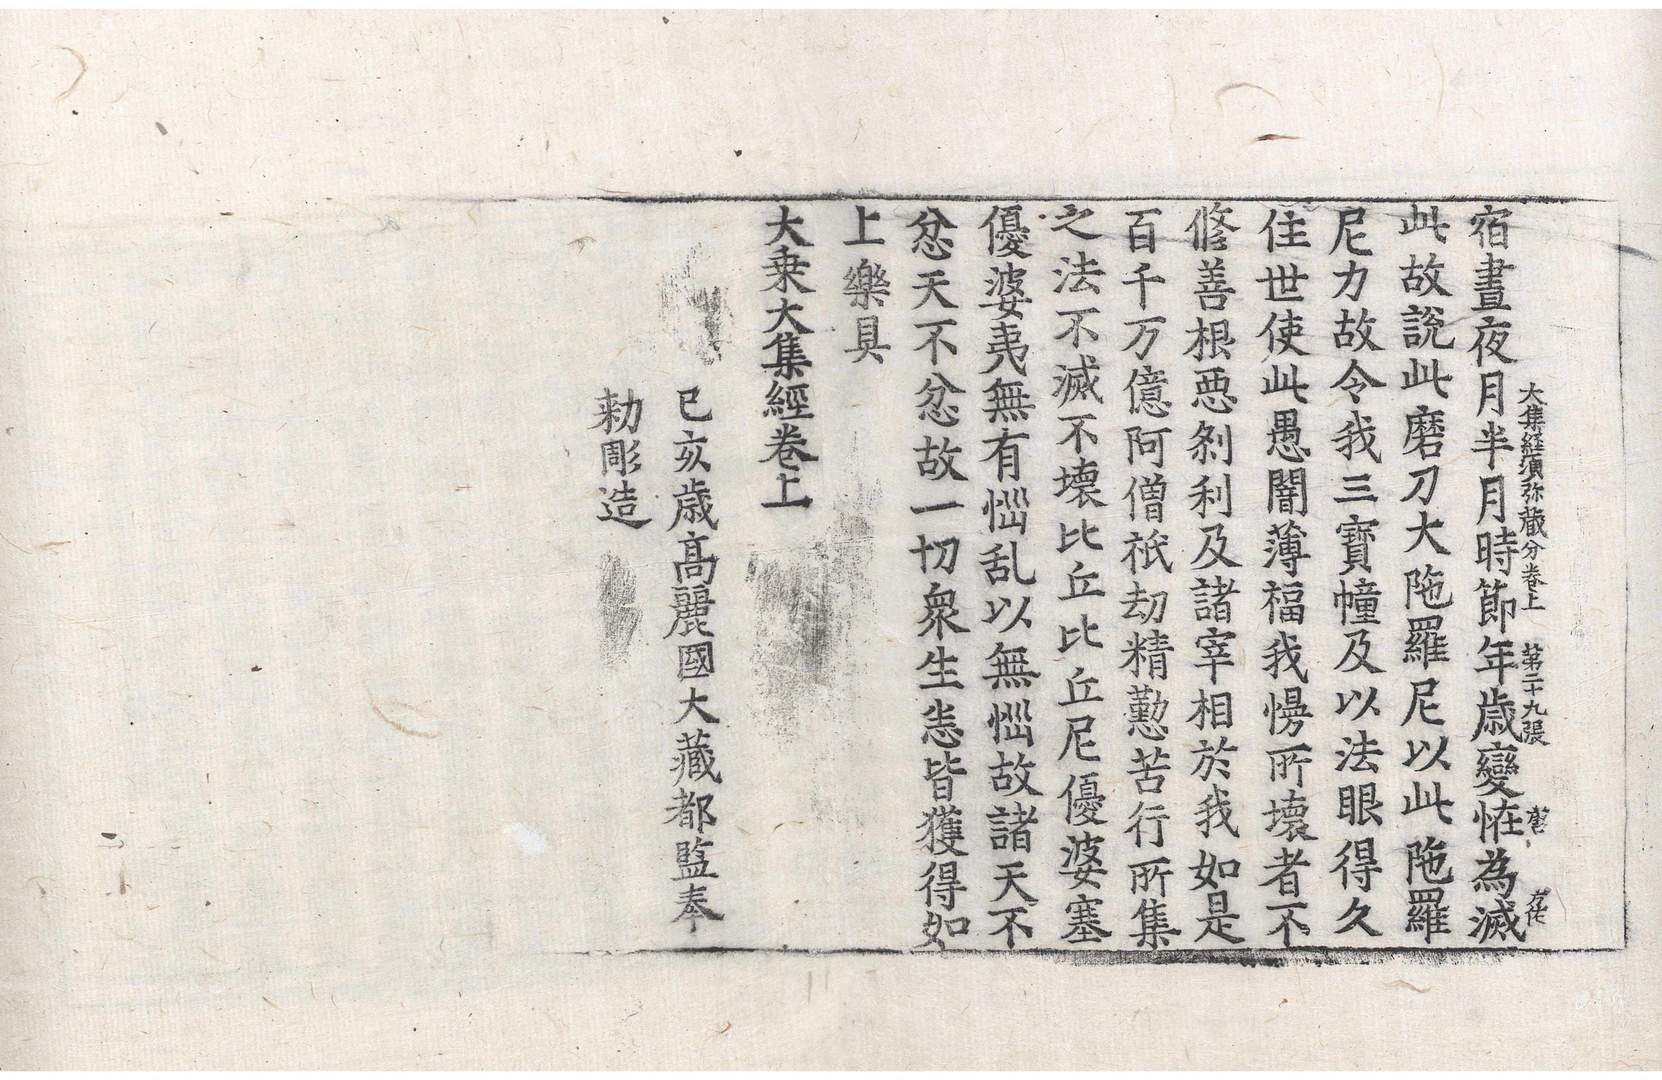 大集經須弥藏分卷上　第二十九張
宿晝夜月半月時節年歲變恠為滅
此故說此磨刀大陁羅尼以此陁羅
尼力故令我三寶幢及以法眼得久
住世使此愚闇薄福我慢所壞者不
修善根惡剎利及諸宰相於我如是
百千万億阿僧祇劫精懃苦行所集
之法不滅不壞比丘比丘尼優婆塞
優婆夷無有惱乱以無惱故諸天不
忿天不忿故一切衆生恙皆獲得如
上樂具
大乗大集經卷上
己亥歲高麗國大藏都監奉
勅彫造